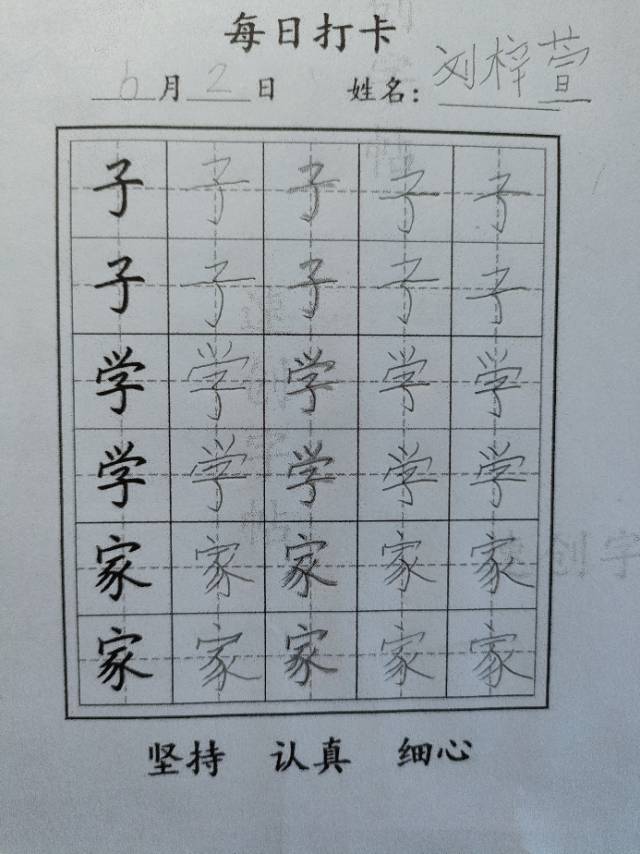 每日打卡
6月2日 姓名：刘梓萱
子子子子子
子子子子子
学学学学学
学学学学学
家家家家家
家家家家家
坚持 认真 细心